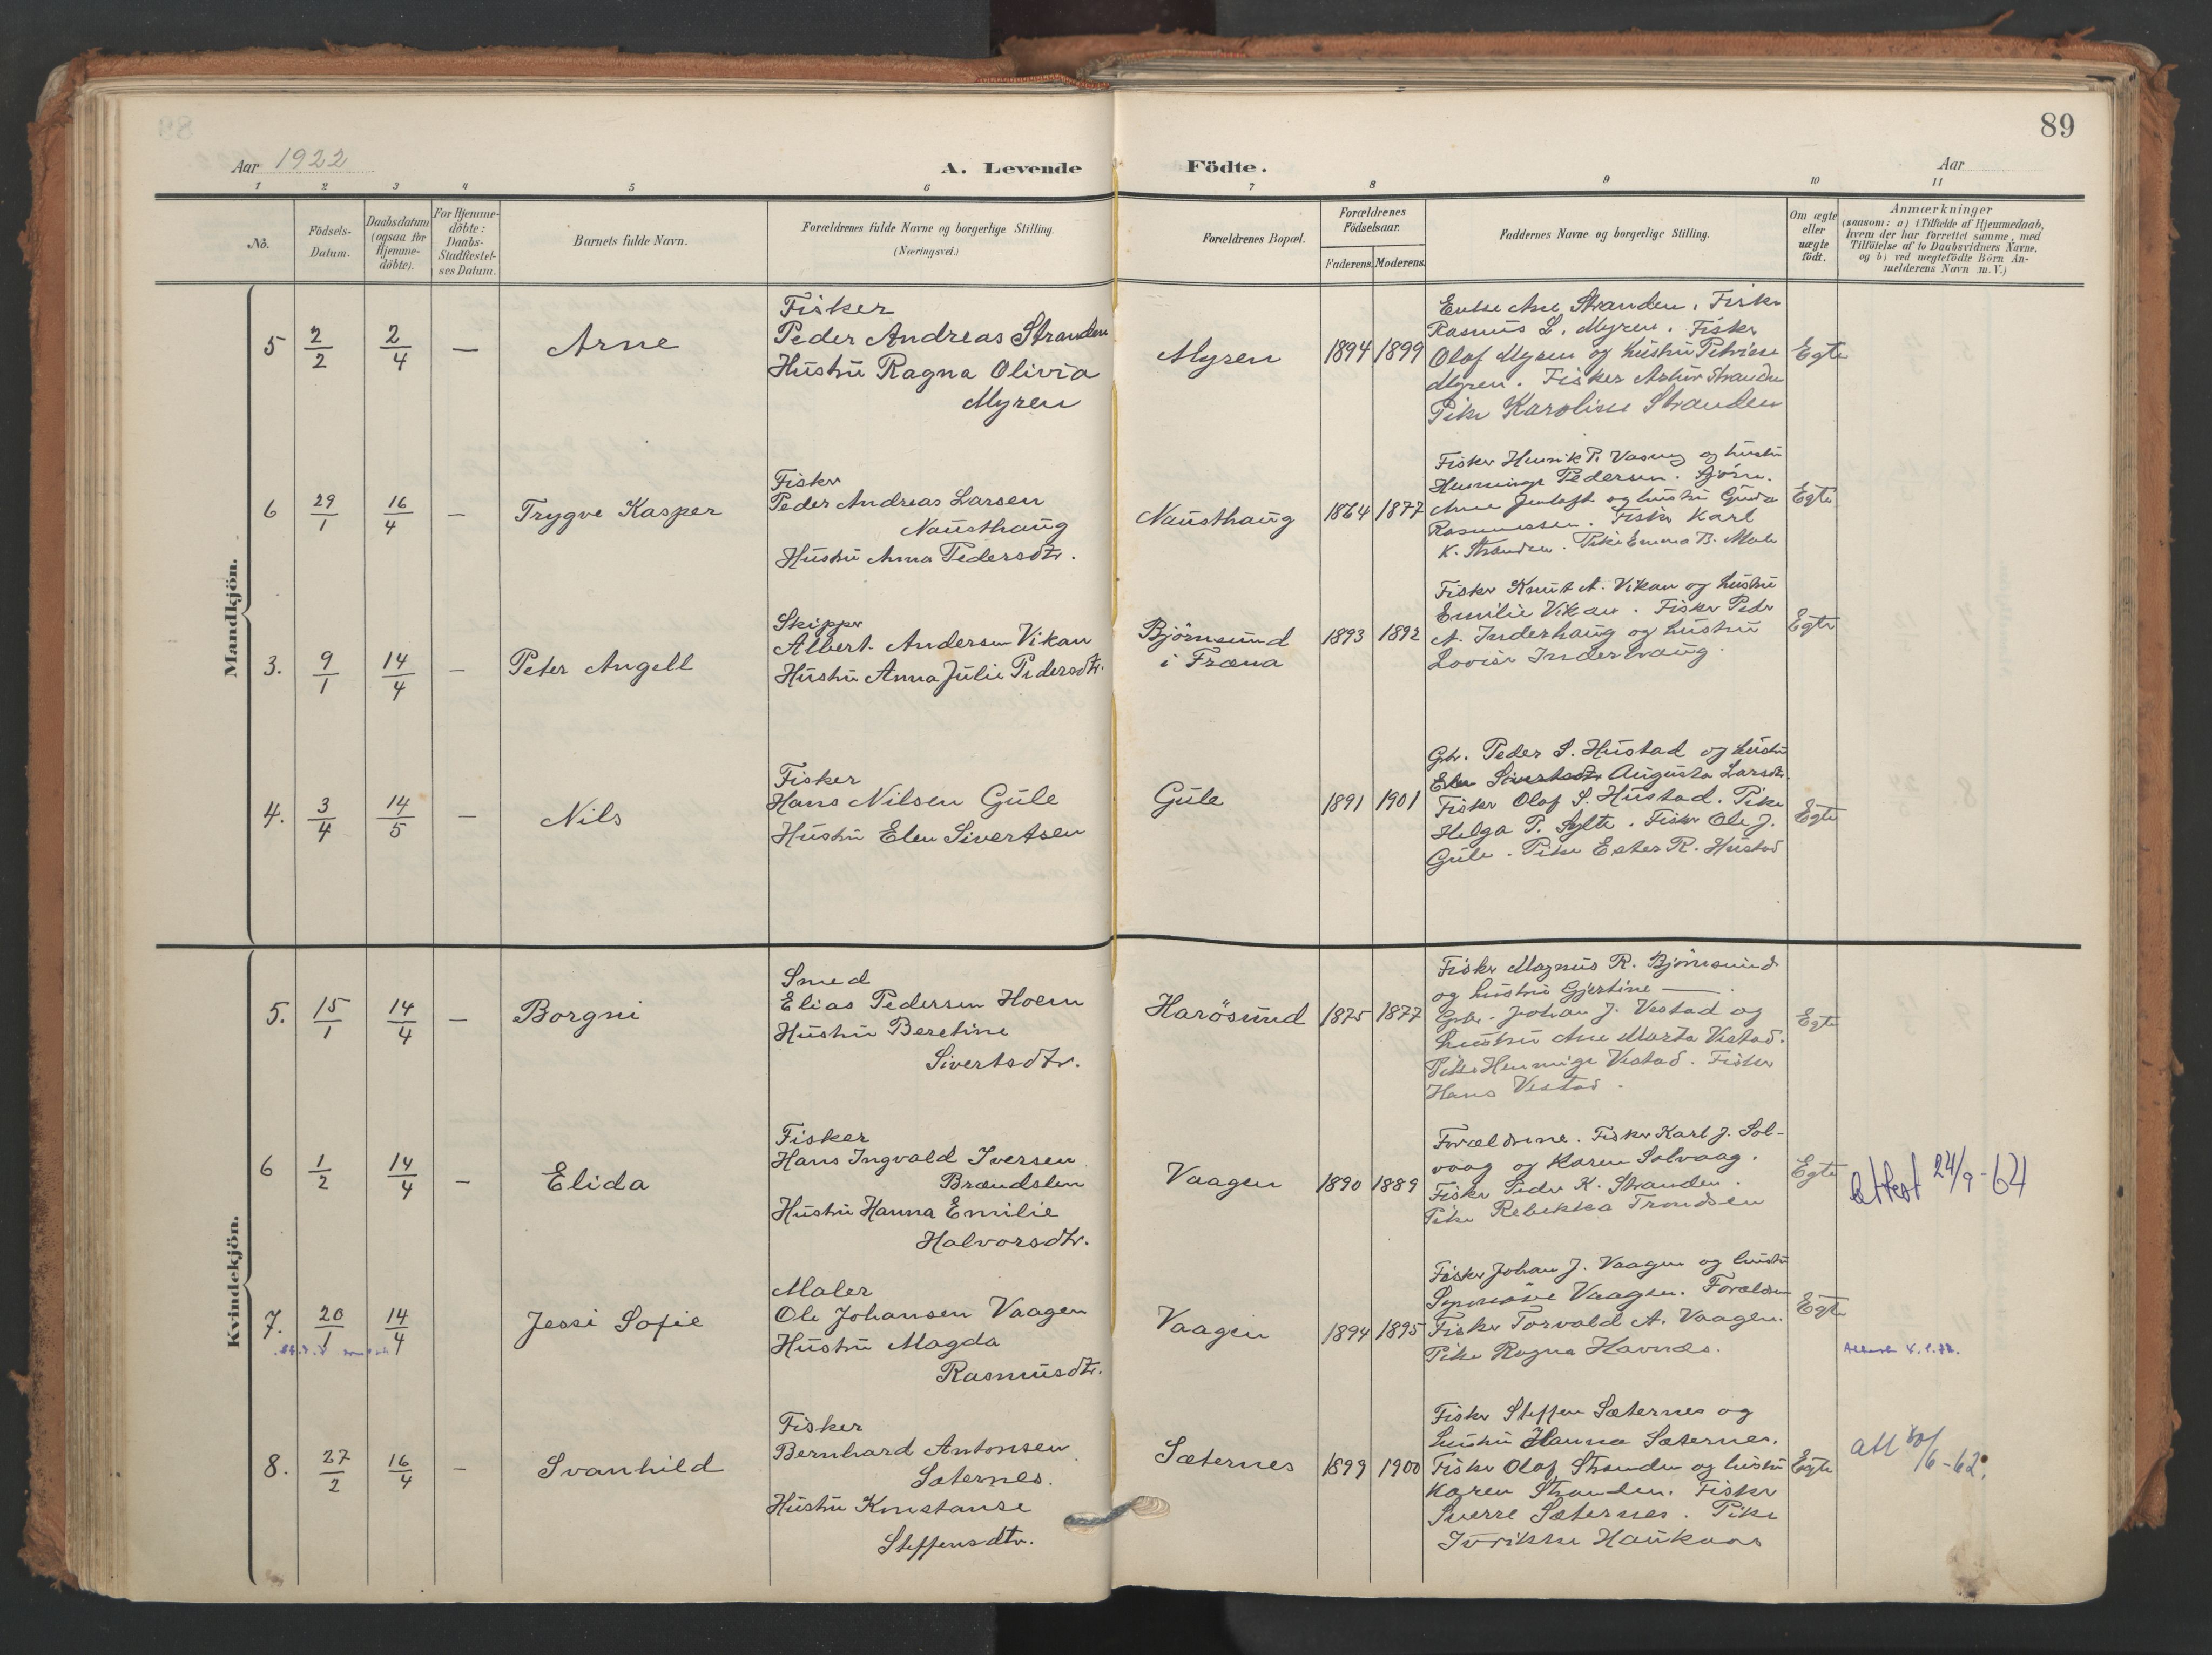 89
Aar 1922
A. Levende Födte.
Aar
1 2 3 4 5 6 7 8 9 10 11
No.
Födsels-
Datum.
Daabsdatum
(ogsaa for
Hjemme-
döbte).
For Hjemme-
döbte:
Daabs-
Stadfæstel-
ses Datum.
Barnets fulde Navn.
Forældrenes fulde Navne og borgerlige Stilling.
(Næringsvei.)
Forældrenes Bopæl.
Forældrenes
Födselsaar.
Faderens. Moderens.
Faddernes Navne og borgerlige Stilling.
Om ægte
eller
uægte
födt.
Anmærkninger
(saasom: a) i Tilfælde af Hjemmedaab,
hvem der har forrettet samme, med
Tilföielse af to Daabsvidners Navne.
og b) ved uægtefödte Börn An-
melderens Navn m. V.)
Mandkjön.
5 2/2 2/4 — Arne
Fisker
Peder Andreas Stranden
Hustru Ragna Olivia
Myren
Myren 1894 1899
Enke Ane Stranden. Fisker
Rasmus L. Myren. Fisker
Olaf Myren og hustru Petrine
Myren. Fisker Stranden
Pike Karoline Stranden
Egte
6 29/1 16/4 — Trygve Kasper
Fisker
Peder Andreas Larsen
Nausthaug
Hustru Anna Pedersdtr.
Nausthaug 1864 1877
Fisker Henrik P. og hustru
Pedersen.
og hustru
Rasmussen. Fisker Karl
K. Stranden. Pike Emma B. Male
Egte
3. 9/1 14/4 — Peter Angell
Skipper
Albert Andersen Vikan
Hustru Anna Julie Pedersdtr.
Björnsund
i Fræna
1893 1892
Fisker Knut A. Vikan og hustru
Emilie Vikan. Fisker Peder
A. Inderhaug og hustru
Lovise Inderhaug.
Egte
4. 3/4 14/5 — Nils
Fisker
Hans Nilsen Gule
Hustru Elen Sivertsen
Gule 1891 1901
Gbr. Peder S. Hustad og hustru
Elen Sivertsdtr Augusta Larsdtr.
Fisker Olaf S. Hustad. Pike
Helga P. Sylte. Fisker Ole J.
Gule. Pike Ester R. Hustad
Egte
Kvindekjön.
5. 15/1 14/4 — Borgni
Smed
Elias Pedersen Hoem
Hustru Beretine
Sivertsdtr.
Harösund 1875 1877
Fisker Magnus R. Björnsund
og hustru Gjertine —
Gbr. Johan J. Vestad og
hustru Ane Marta Vestad.
Pike Henninge Vestad. Fisker
Hans Vestad.
Egte
6 1/2 14/4 — Elida
Fisker
Hans Ingvald Iversen
Brændslen
Hustru Hanna Emilie
Halvorsdtr.
Vaagen 1890 1889
Forældrene. Fisker Karl J. Sol-
vaag og Karen Solvaag.
Fisker Peder K. Stranden.
Pike Rebekka Trondsen
Egte
attest 24/9-64
7. 20/1 14/4 Jessi Sofie
Maler
Ole Johansen Vaagen
Hustru Magda
Rasmusdtr.
Vaagen 1894 1895
Fisker Johan J. Vaagen og hustru
Synnöve Vaagen. Forældrene
Fisker Torvald A. Vaagen.
Pike Ragna Havnæs.
Egte
8. 27/2 16/4 — Svanhild
Fisker
Bernhard Antonsen
Sæternes.
Hustru Konstanse
Steffensdtr.
Sæternes 1899 1900
Fisker Steffen Sæternes og
hustru Hanna Sæternes.
Fisker Olaf Stranden og hustru
Karen Stranden. Fisker
Sverre Sæternes. Pike
Haukaas
Egte
att /6-62.